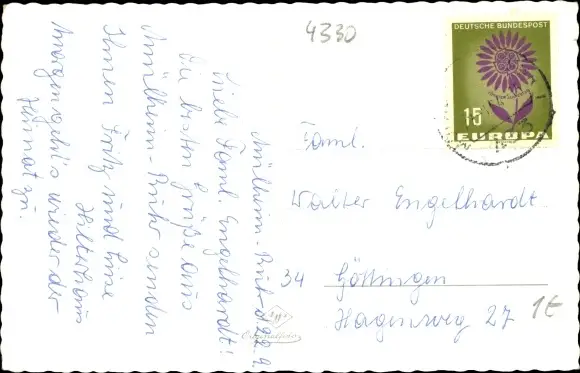 4330
Mülheim-Ruhr d. 22.9.
Liebe Faml. Engelhardt!
Die besten Grüße aus
Mülheim-Ruhr senden
Ihnen Fritz und Eine
Hiltschaus
Morgen geht's wieder der
Heimat zu.
DEUTSCHE BUNDESPOST
15
EUROPA
Faml.
Walter Engelhardt.
34 Göttingen
Hagenweg 27
1€
Originalfoto